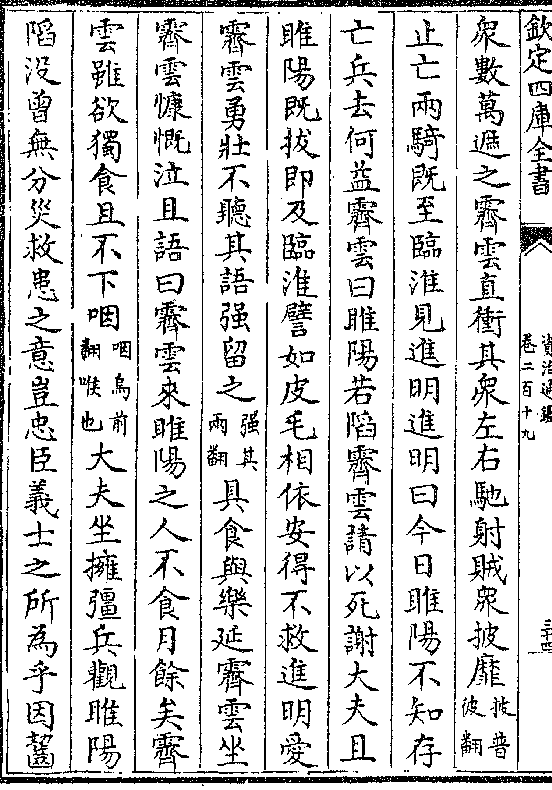 欽定四庫全書
資治通鑑
卷二百十九
三十四
衆數萬遮之霽雲直衝其衆左右馳射賊衆披靡披普彼翻
止亡兩騎既至臨淮見進明進明曰今日睢陽不知存
亡兵去何益霽雲曰睢陽若陷霽雲請以死謝大夫且
睢陽既拔即及臨淮譬如皮毛相依安得不救進明愛
霽雲勇壯不聽其語强留之强其兩翻具食與樂延霽雲坐
霽雲慷慨泣且語曰霽雲來睢陽之人不食月餘矣霽
雲雖欲獨食且不下咽咽烏前翻喉也大夫坐擁彊兵觀睢陽
陷没曾無分災救患之意豈忠臣義士之所為乎因齧